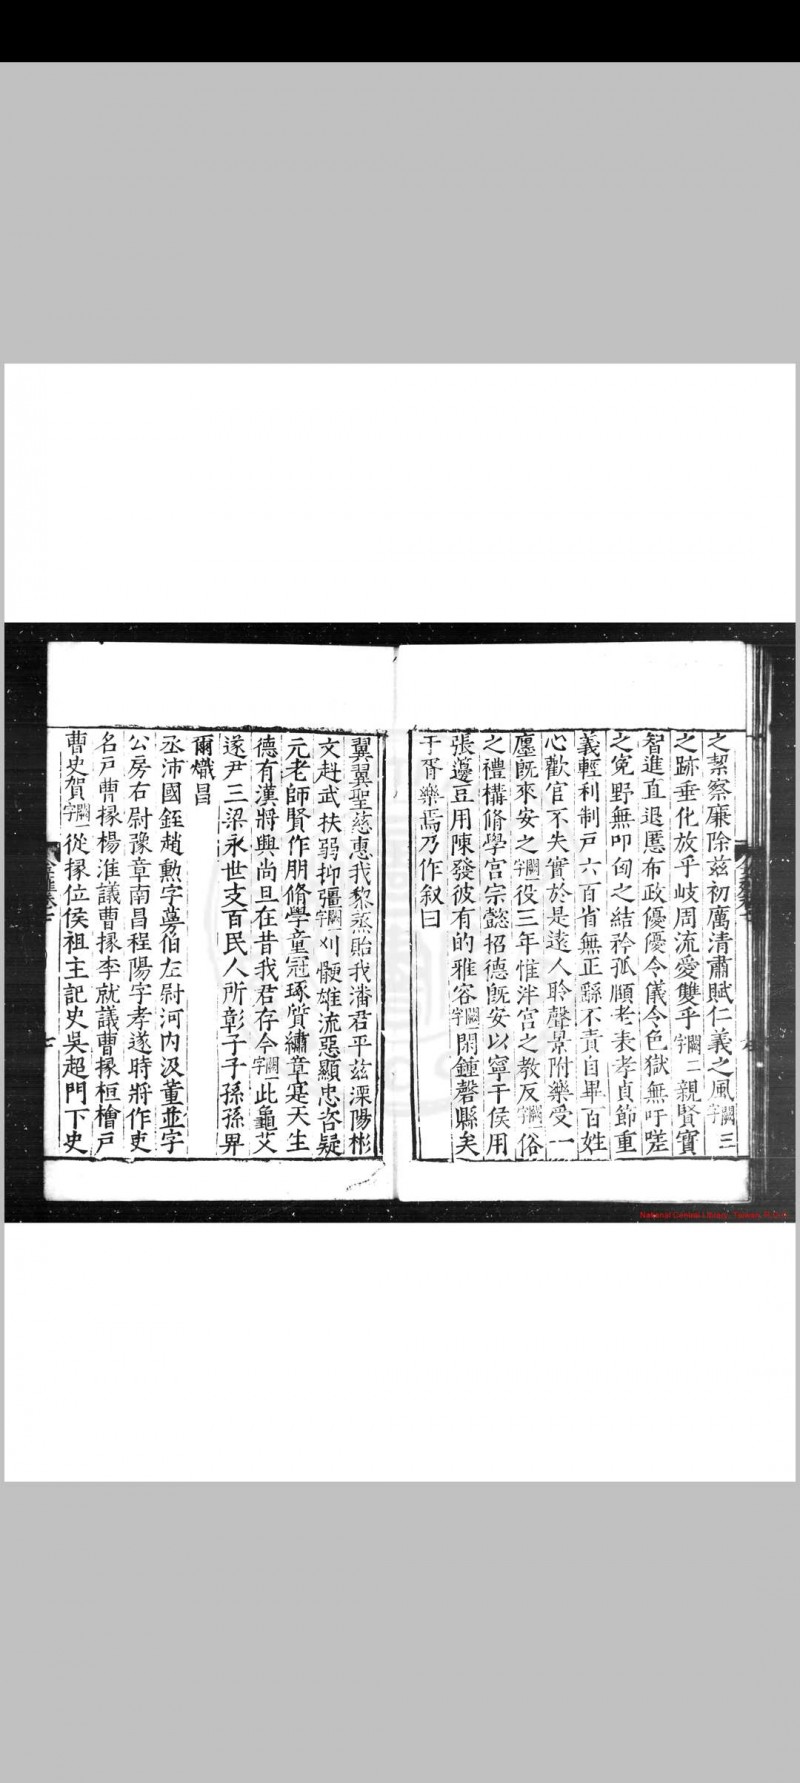 之絜察廉除茲初厲清肅賦仁義之風闕三字
之跡垂化放乎岐周流愛雙乎闕二字親賢寶
智進直退慝布政優優令儀令色獄無吁嗟
之冤野無叩匈之結矜孤頤老表孝貞節重
義輕利制戶六百省無正繇不責自畢百姓
心歡官不失實於是遠人聆聲景附樂受一
廛旣來安之闕一字役三年惟泮宮之教反闕一字俗
之禮構脩學宮宗懿招德旣安以寧干侯用
張籩豆用陳發彼有的雅容闕一字閑鍾磬縣矣
于胥樂焉乃作叙曰
翼翼聖慈惠我黎烝貽我潘君平茲溧陽彬
文赳武扶弱抑彊闕一字刈骾雄流惡顯忠咨疑
元老師賢作朋脩學童冠琢質繡章寔天生
德有漢將興尚旦在昔我君存今闕一字此龜艾
遂尹三梁永世支百民人所彰子子孫孫畀
爾熾昌
丞沛國銍趙勳字蕚伯左尉河內汲董並字
公房右尉豫章南昌程陽字孝遂時將作吏
名戶曹掾楊淮議曹掾李就議曹掾桓檜戶
曹史賀闕一字從掾位侯祖主記史吳超門下史
National Central Library, Taiwan, R.O.C.